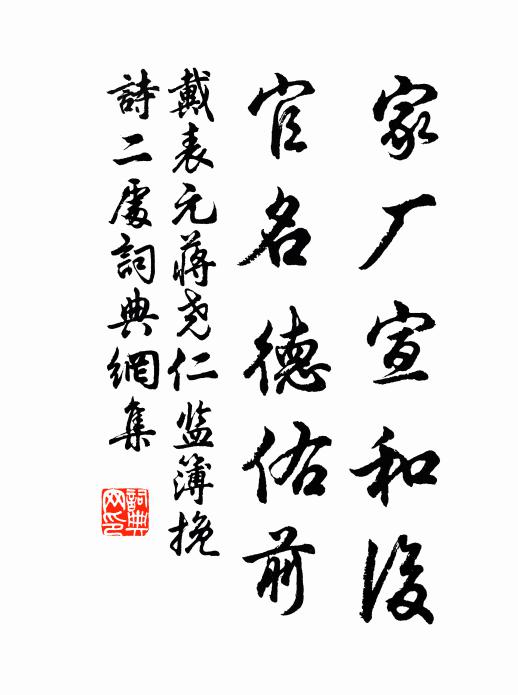 家厂宣和後
官名德佑前
戴表元蔣尧仁监簿挽
詩二處詞典網集
詞典
网印